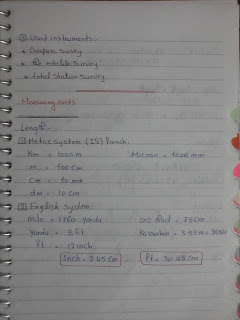 ③ Used instruments:-
* Compass survey
* theodolite survey
* total station survey
Measuring Units
Length:-
① Metric system (IS) French:
Km = 1000m Micron = 1000 mm
m = 100 cm
cm = 10 mm
dm = 10 cm
② English system:
mile = 1760 Yards = 75cm.
Yards = 3 ft
ft = 12 inch.
1 inch = 2.45 cm 1 ft = 30.48 cm